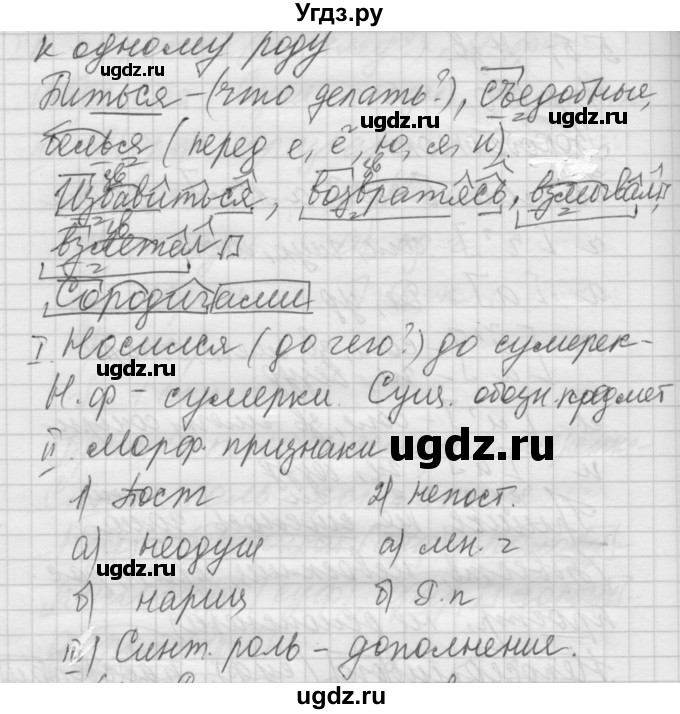 Угдз.ру
к одному роду
ugdz.ru ugdz.ru
Биться – (что делать?), съедобные,
ugdz.ru ugdz.ru
белья (перед е, ё, ю, я, и)
Избавиться, возвратясь, взмывал,
взлетал
ugdz.ru ugdz.ru
Сородичами
I. Носился (до чего?) до сумерек –
ugdz.ru
Н.ф – сумерки. Сущ. обозн. предмет
II. Морф. признаки
ugdz.ru
1) Пост 2) непост.
ugdz.ru
а) неодуш а) мн. ч
ugdz.ru
б) нариц б) Р.п
III) Синт. роль – дополнение.
ugdz.ru
ugdz.ru